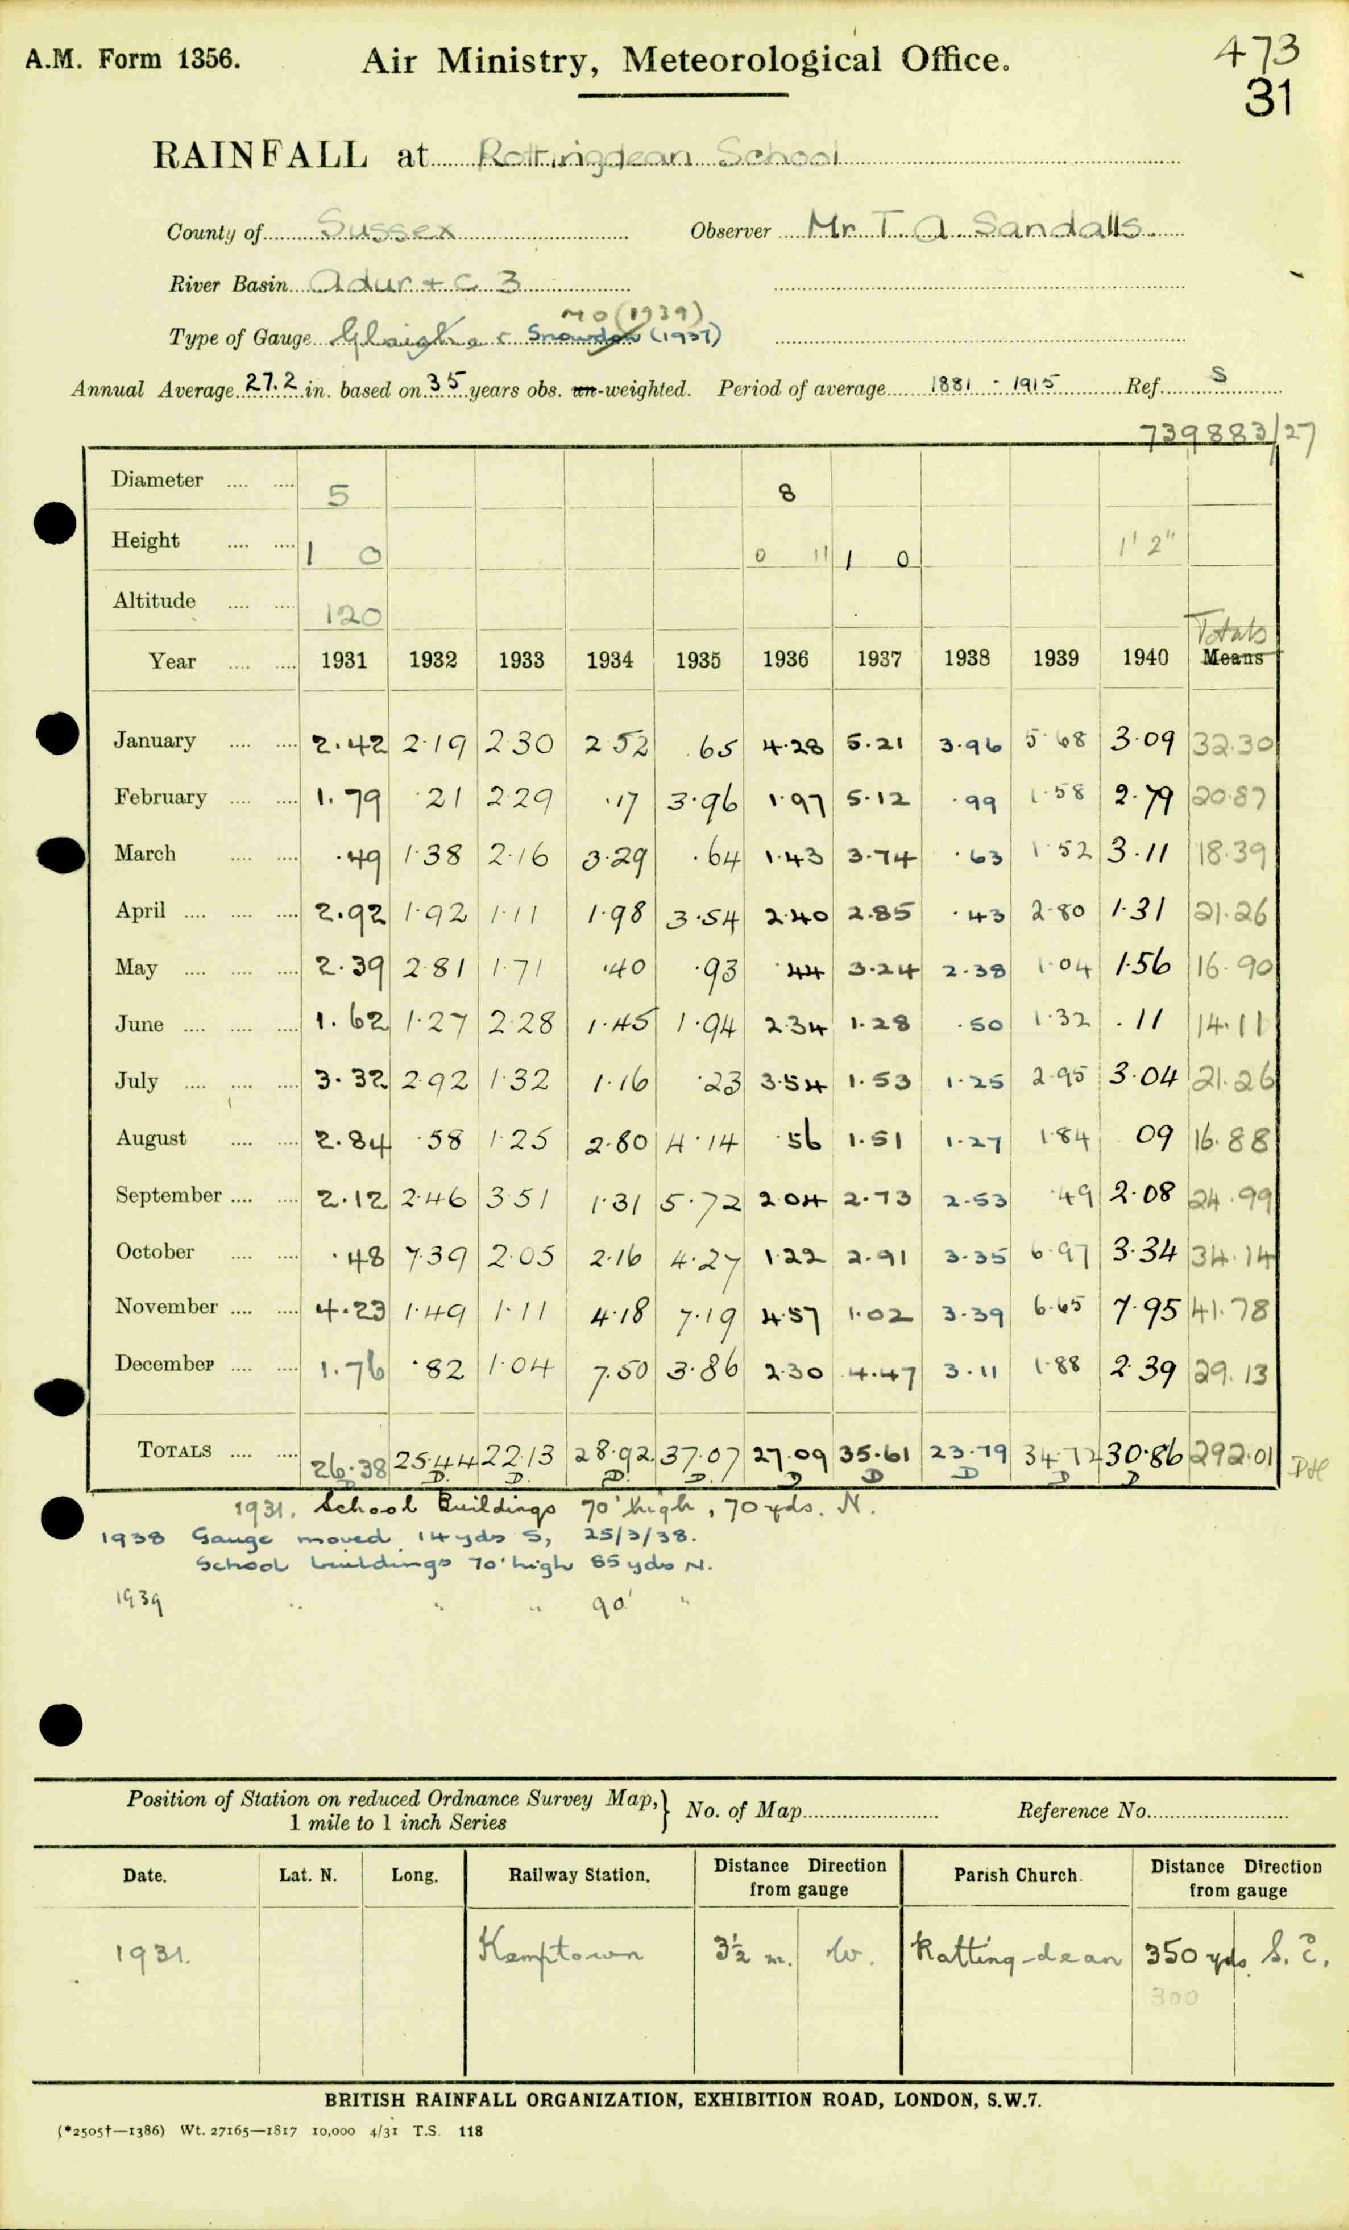 A.M. Form 1356.
Air Ministry, Meteorological Office.
473
31
RAINFALL at Rottingdean School
County of Sussex Observer Mr T. A. Sandalls.
River Basin Adur + C 3
MO (1939)
Type of Gauge Glaisher Snowdon (1937)
Annual Average 27.2 in. based on 35 years obs. un-weighted. Period of average 1881 - 1915 Ref. S
739883/27
Diameter 5 8
Height 1 0 0 11 1 0 1' 2"
Altitude 120
Totals
Year 1931 1932 1933 1934 1935 1936 1937 1938 1939 1940 Means
January 2.42 2.19 2.30 2.52 .65 4.28 5.21 3.96 5.68 3.09 32.30
February 1.79 .21 2.29 .17 3.96 1.97 5.12 .99 1.58 2.79 20.87
March .49 1.38 2.16 3.29 .64 1.43 3.74 .63 1.52 3.11 18.39
April 2.92 1.92 1.11 1.98 3.54 2.40 2.85 .43 2.80 1.31 21.26
May 2.39 2.81 1.71 .40 .93 .44 3.24 2.38 1.04 1.56 16.90
June 1.62 1.27 2.28 1.45 1.94 2.34 1.28 .50 1.32 .11 14.11
July 3.32 2.92 1.32 1.16 .23 3.54 1.53 1.25 2.95 3.04 21.26
August 2.84 .58 1.25 2.80 4.14 .56 1.51 1.27 1.84 09 16.88
September 2.12 2.46 3.51 1.31 5.72 2.04 2.73 2.53 .49 2.08 24.99
October .48 7.39 2.05 2.16 4.27 1.22 2.91 3.35 6.97 3.34 34.14
November 4.23 1.49 1.11 4.18 7.19 4.57 1.02 3.39 6.65 7.95 41.78
December 1.76 .82 1.04 7.50 3.86 2.30 4.47 3.11 1.88 2.39 29.13
TOTALS 26.38 25.44 22.13 28.92 37.07 27.09 35.61 23.79 34.72 30.86 292.01
D D D D D D D D D D
1931. School Buildings 70' high, 70 yds. N.
1938 Gauge moved 14 yds S, 25/3/38.
School buildings 70' high 85 yds N.
1939 " " " 90' "
Position of Station on reduced Ordnance Survey Map, } No. of Map Reference No.
1 mile to 1 inch Series
Date. Lat. N. Long. Railway Station. Distance Direction from gauge Parish Church. Distance Direction from gauge
1931. Kemptown 3½ m. W. Rotting-dean 350 yds. S. E.
300
BRITISH RAINFALL ORGANIZATION, EXHIBITION ROAD, LONDON, S.W.7.
(*2505†—1386) Wt. 27165—1817 10,000 4/31 T.S. 118